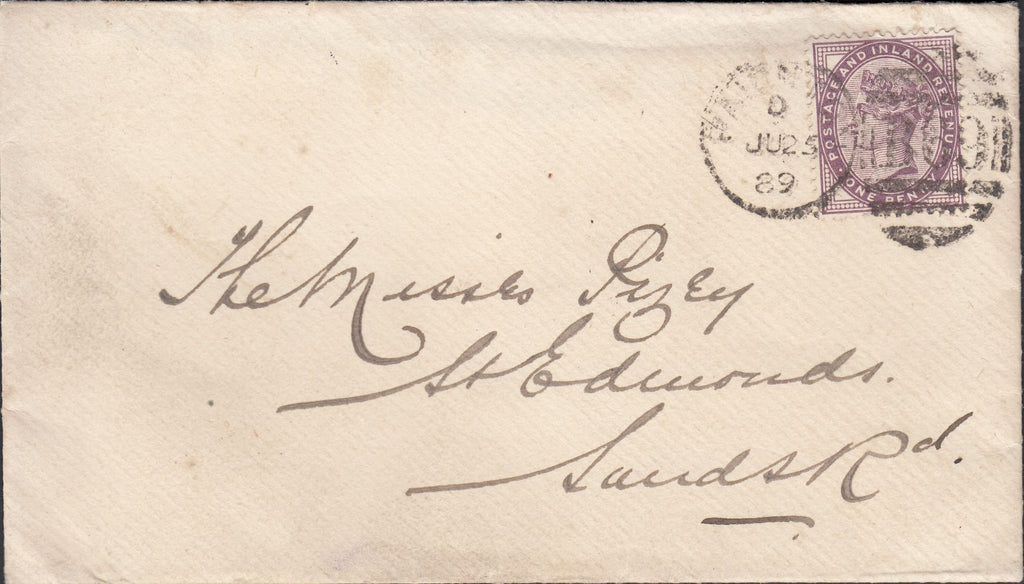 POSTAGE AND INLAND REVENUE
ONE PENNY
D
JU 25
89
The Misses Pizey
St Edmonds.
Sands Rd.